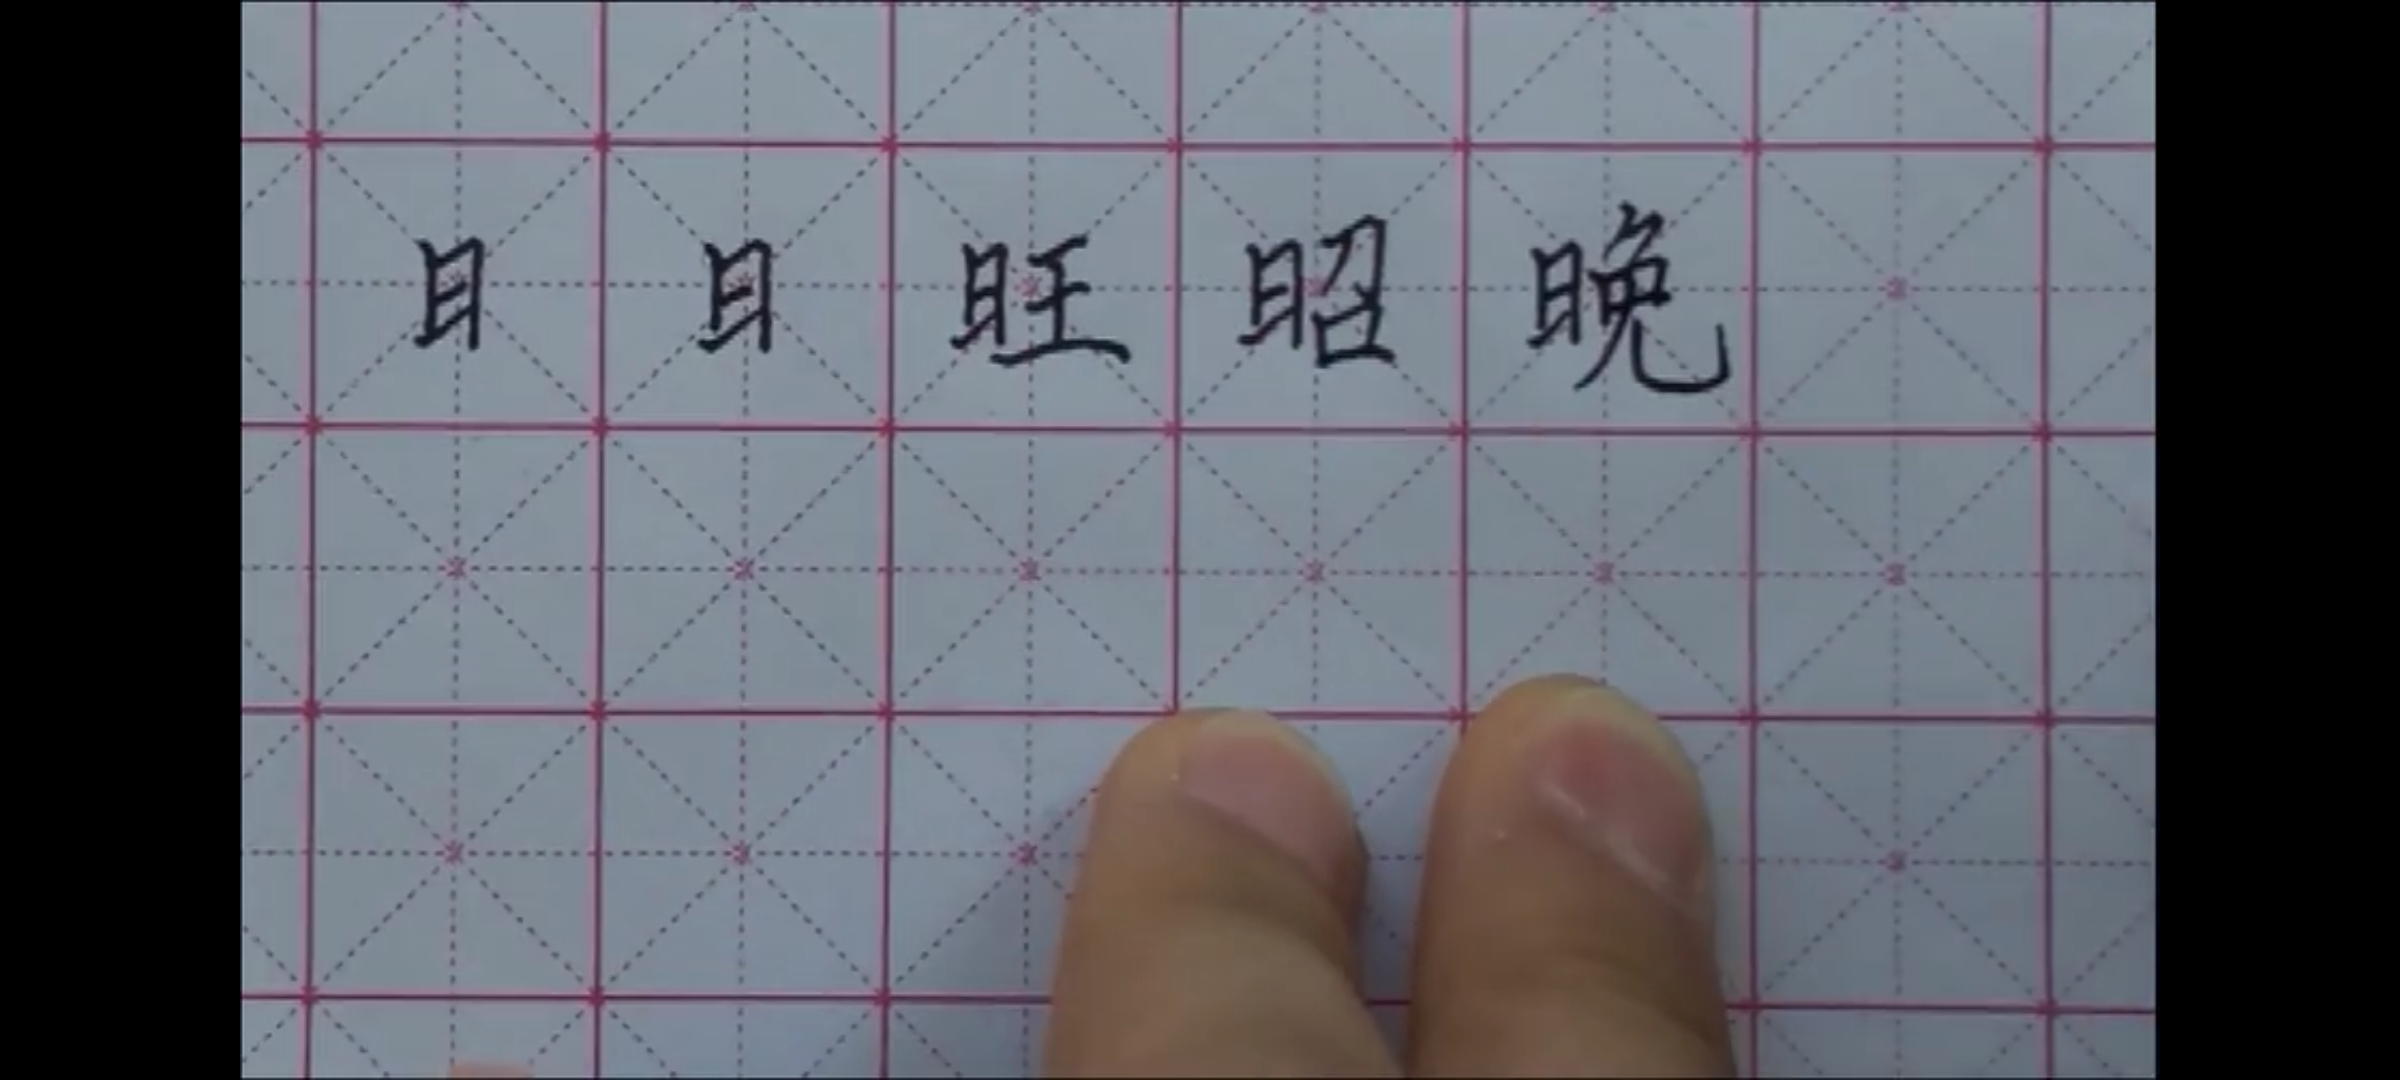 日日旺昭晚